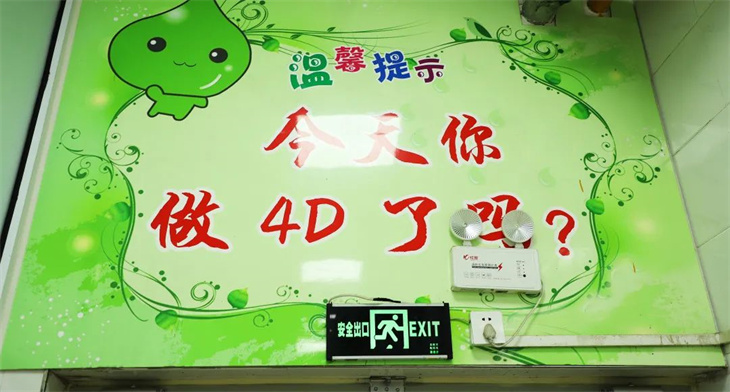 温馨提示
今天你
做4D了吗?
安全出口 EXIT